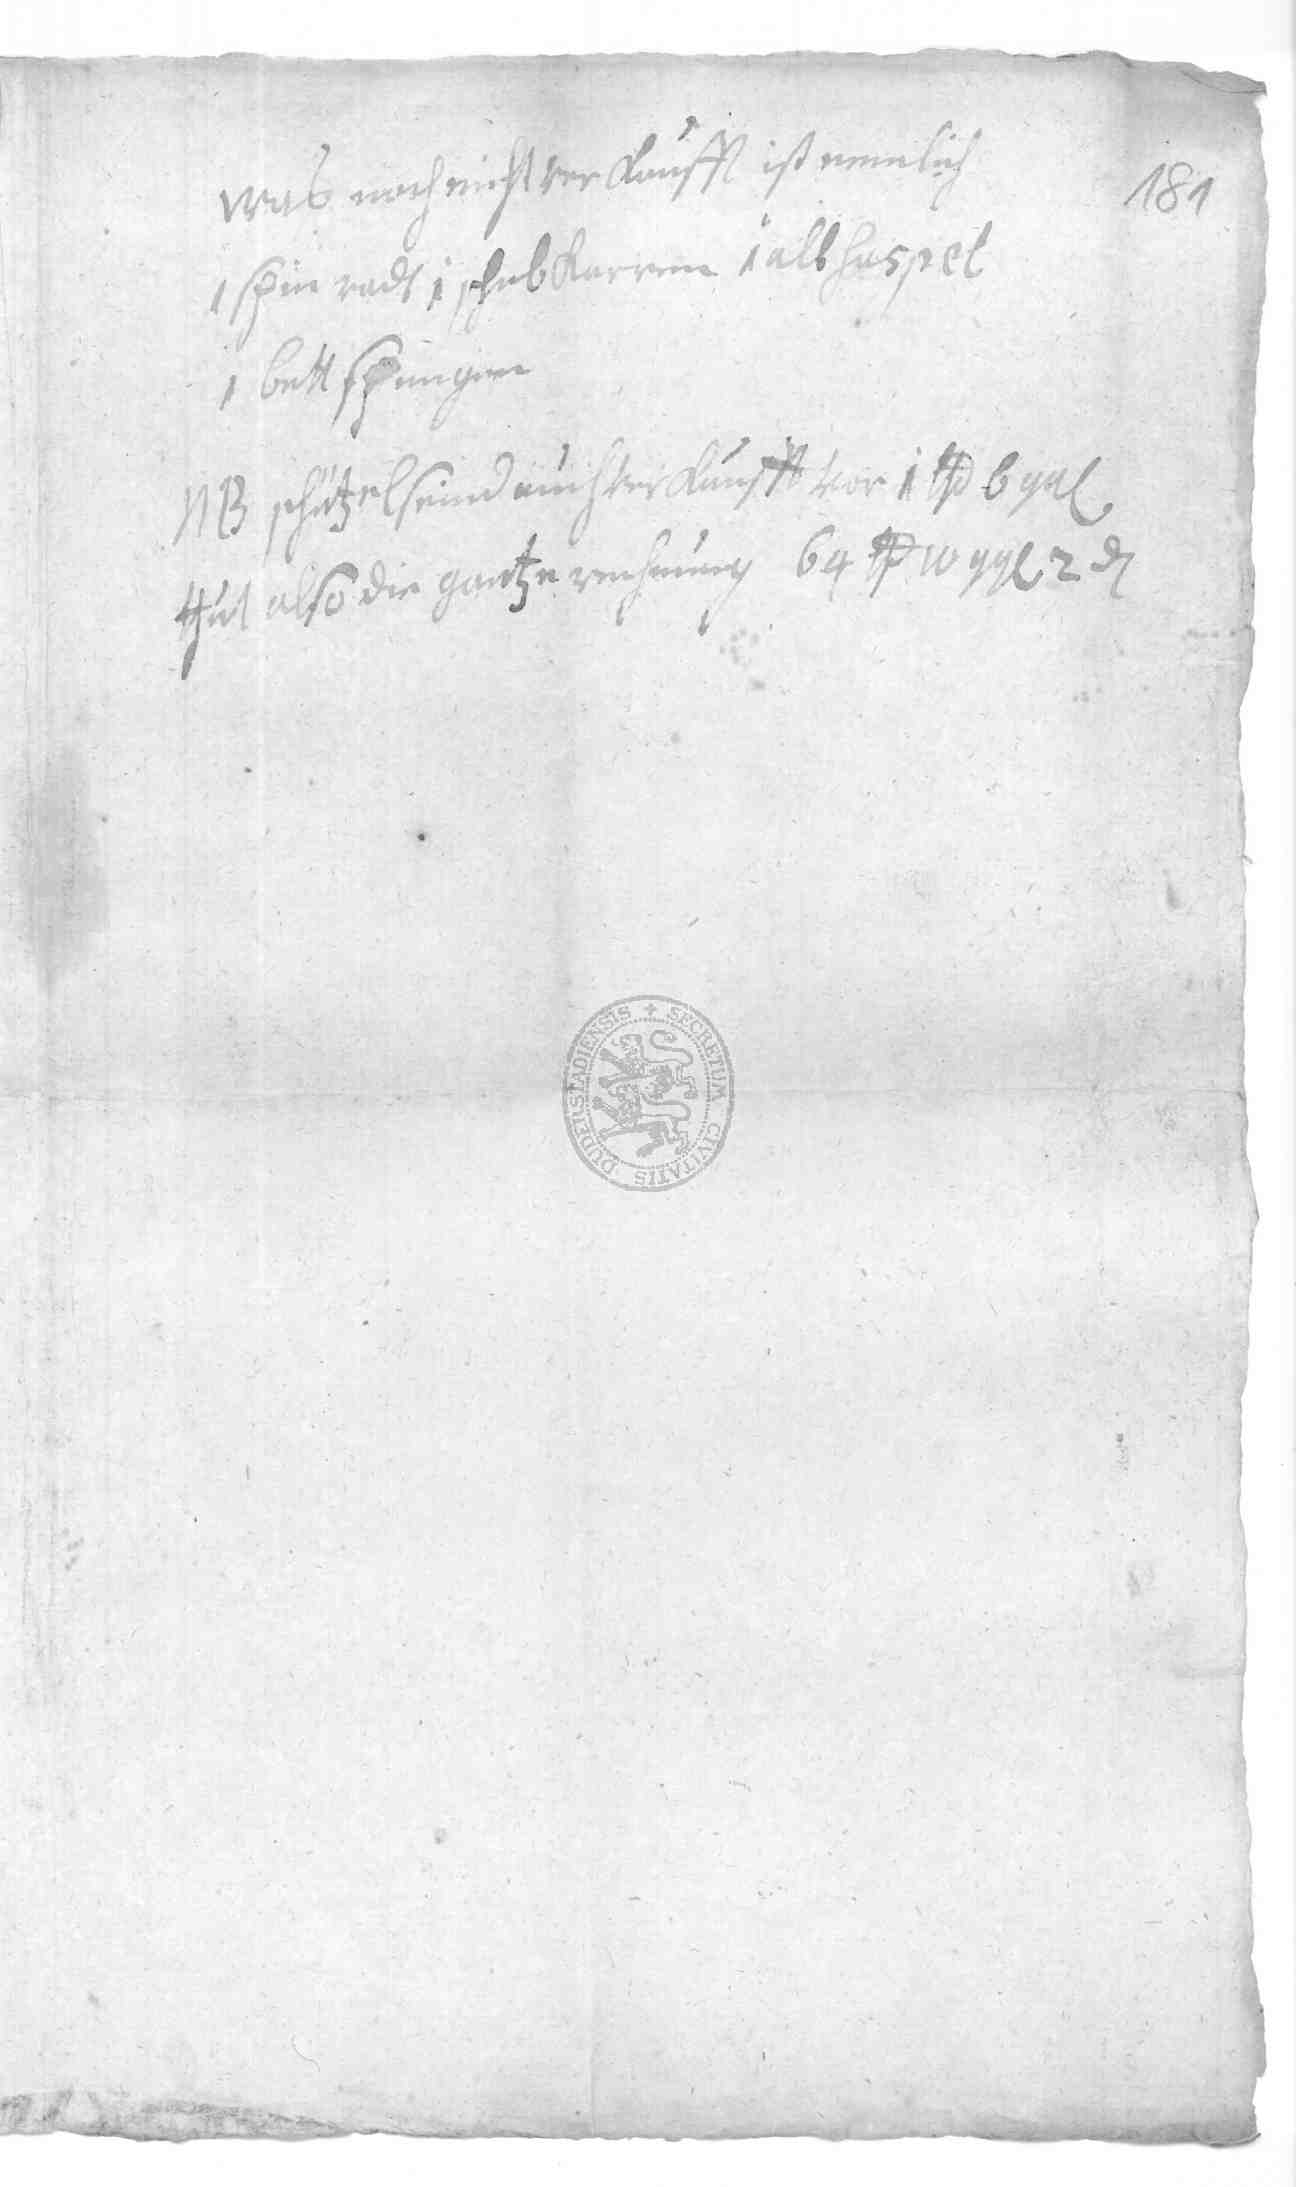 181
was noch nicht ver kaufft ist nemlich
1 spin radt 1 schub karren 1 alt haspel
1 bett spungen
NB schützel seind auch verkaufft vor 1 thl 6 ggl
thut also die gantze rechnung 64 thl 10 ggl 2 d
SECRETUM CIVITATIS DUDERSTADIENSIS